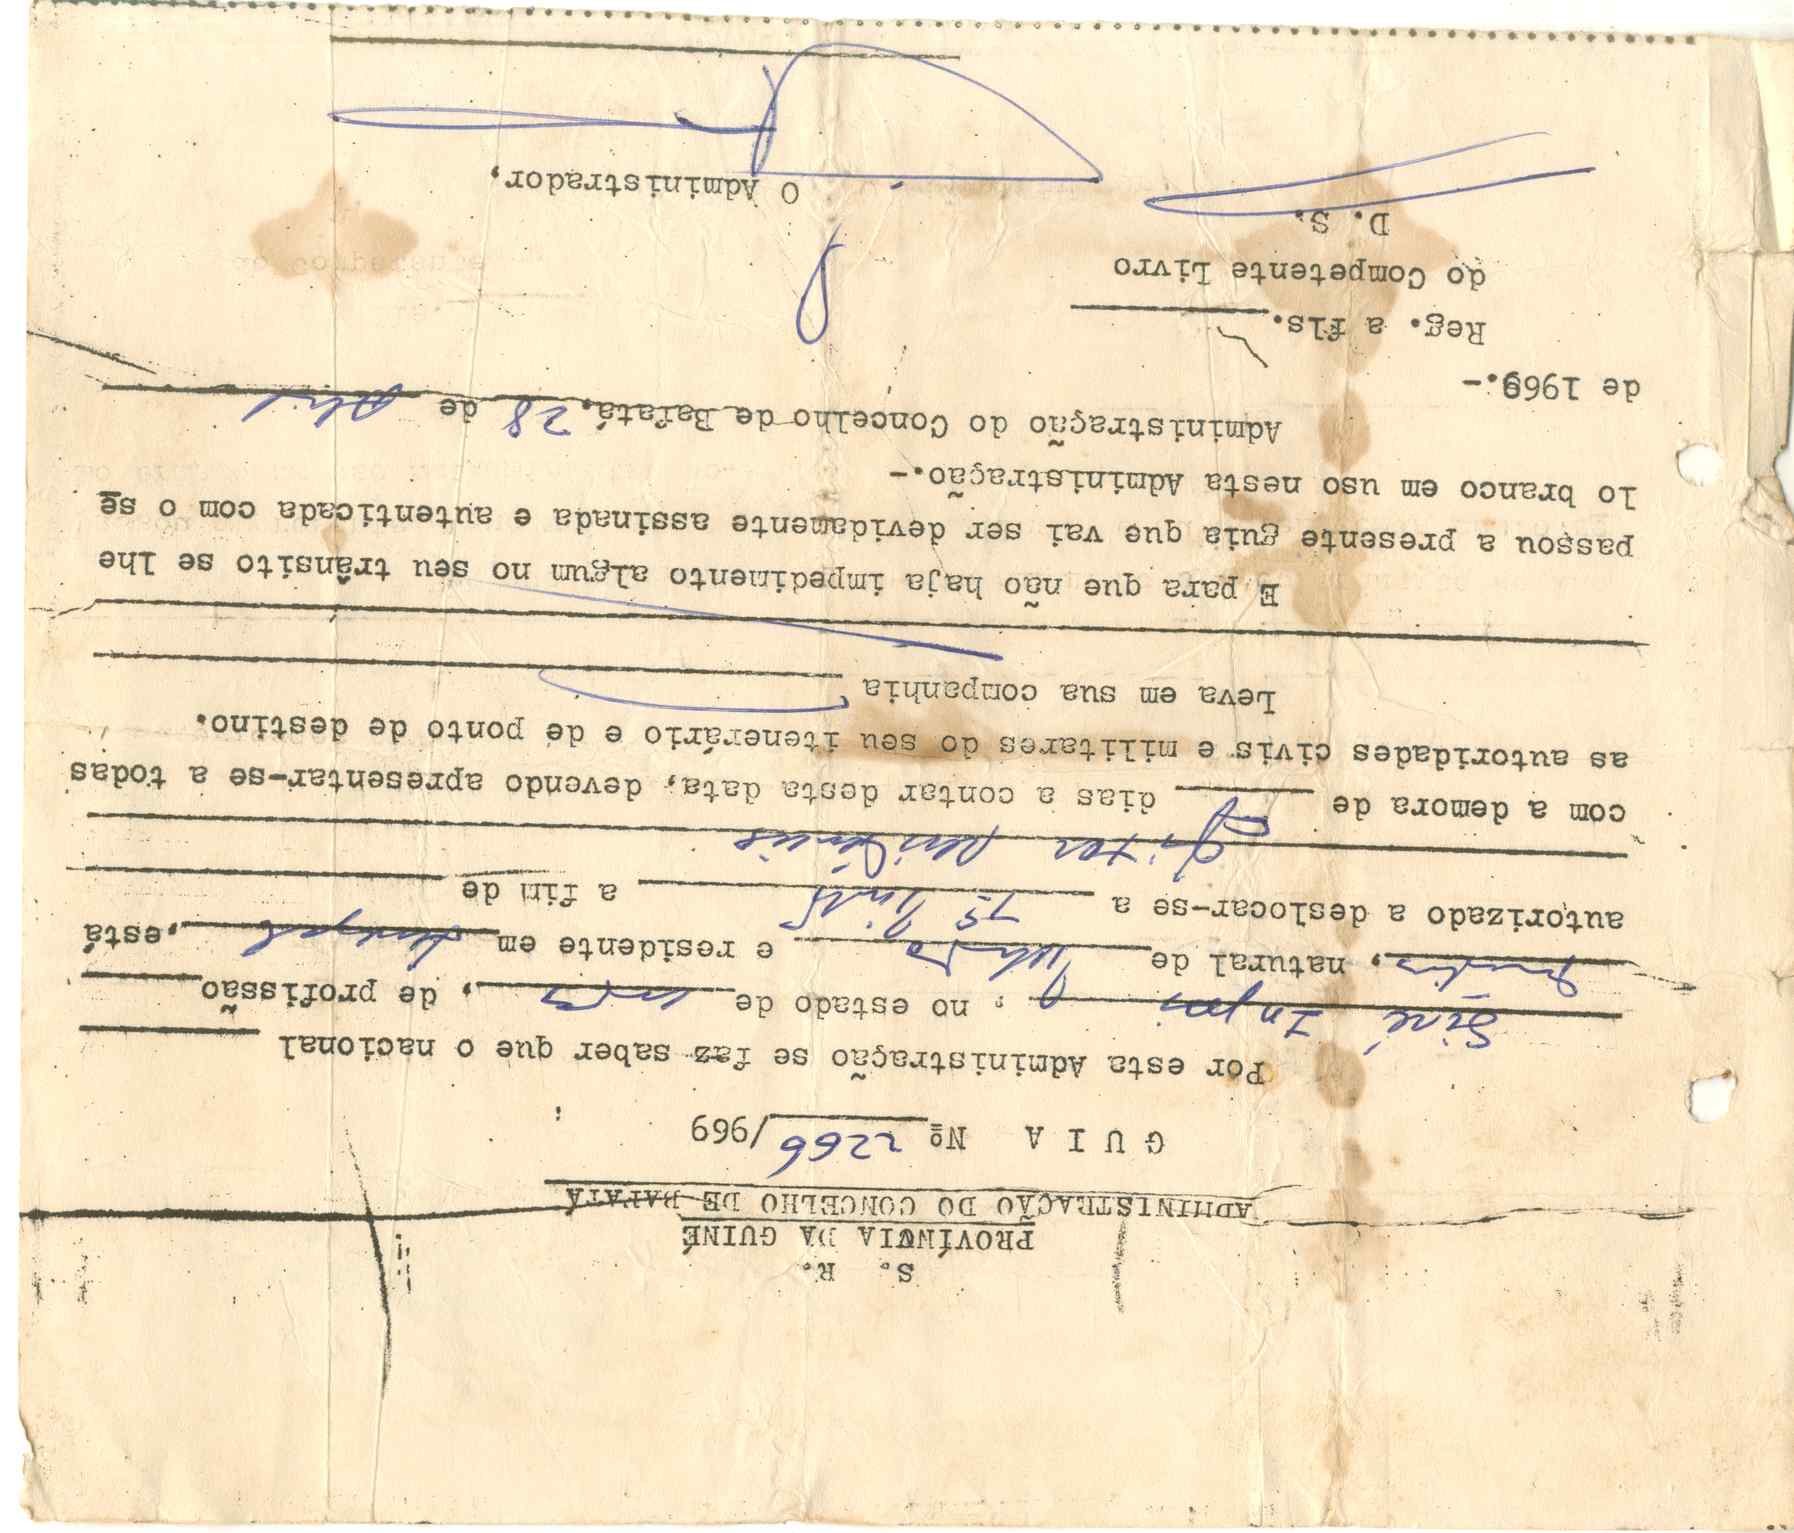 S. R.
PROVÍNCIA DA GUINÉ
ADMINISTRAÇÃO DO CONCELHO DE BAFATÁ
G U I A Nº 2266/969
Por esta Administração se faz saber que o nacional
Siré Injai, no estado de, de profissão
, natural de e residente em, está
autorizado a deslocar-se a a fim de
com a demora de dias a contar desta data, devendo apresentar-se a todas
as autoridades civis e militares do seu itenerário e de ponto de destino.
Leva em sua companhia
E para que não haja impedimento algum no seu trânsito se lhe
passou a presente guia que vai ser devidamente assinada e autenticada com o se
lo branco em uso nesta Administração.-
Administração do Concelho de Bafatá, 28 de Abril
de 1969.-
Reg. a fls.
do Competente Livro
D. S.
O Administrador,